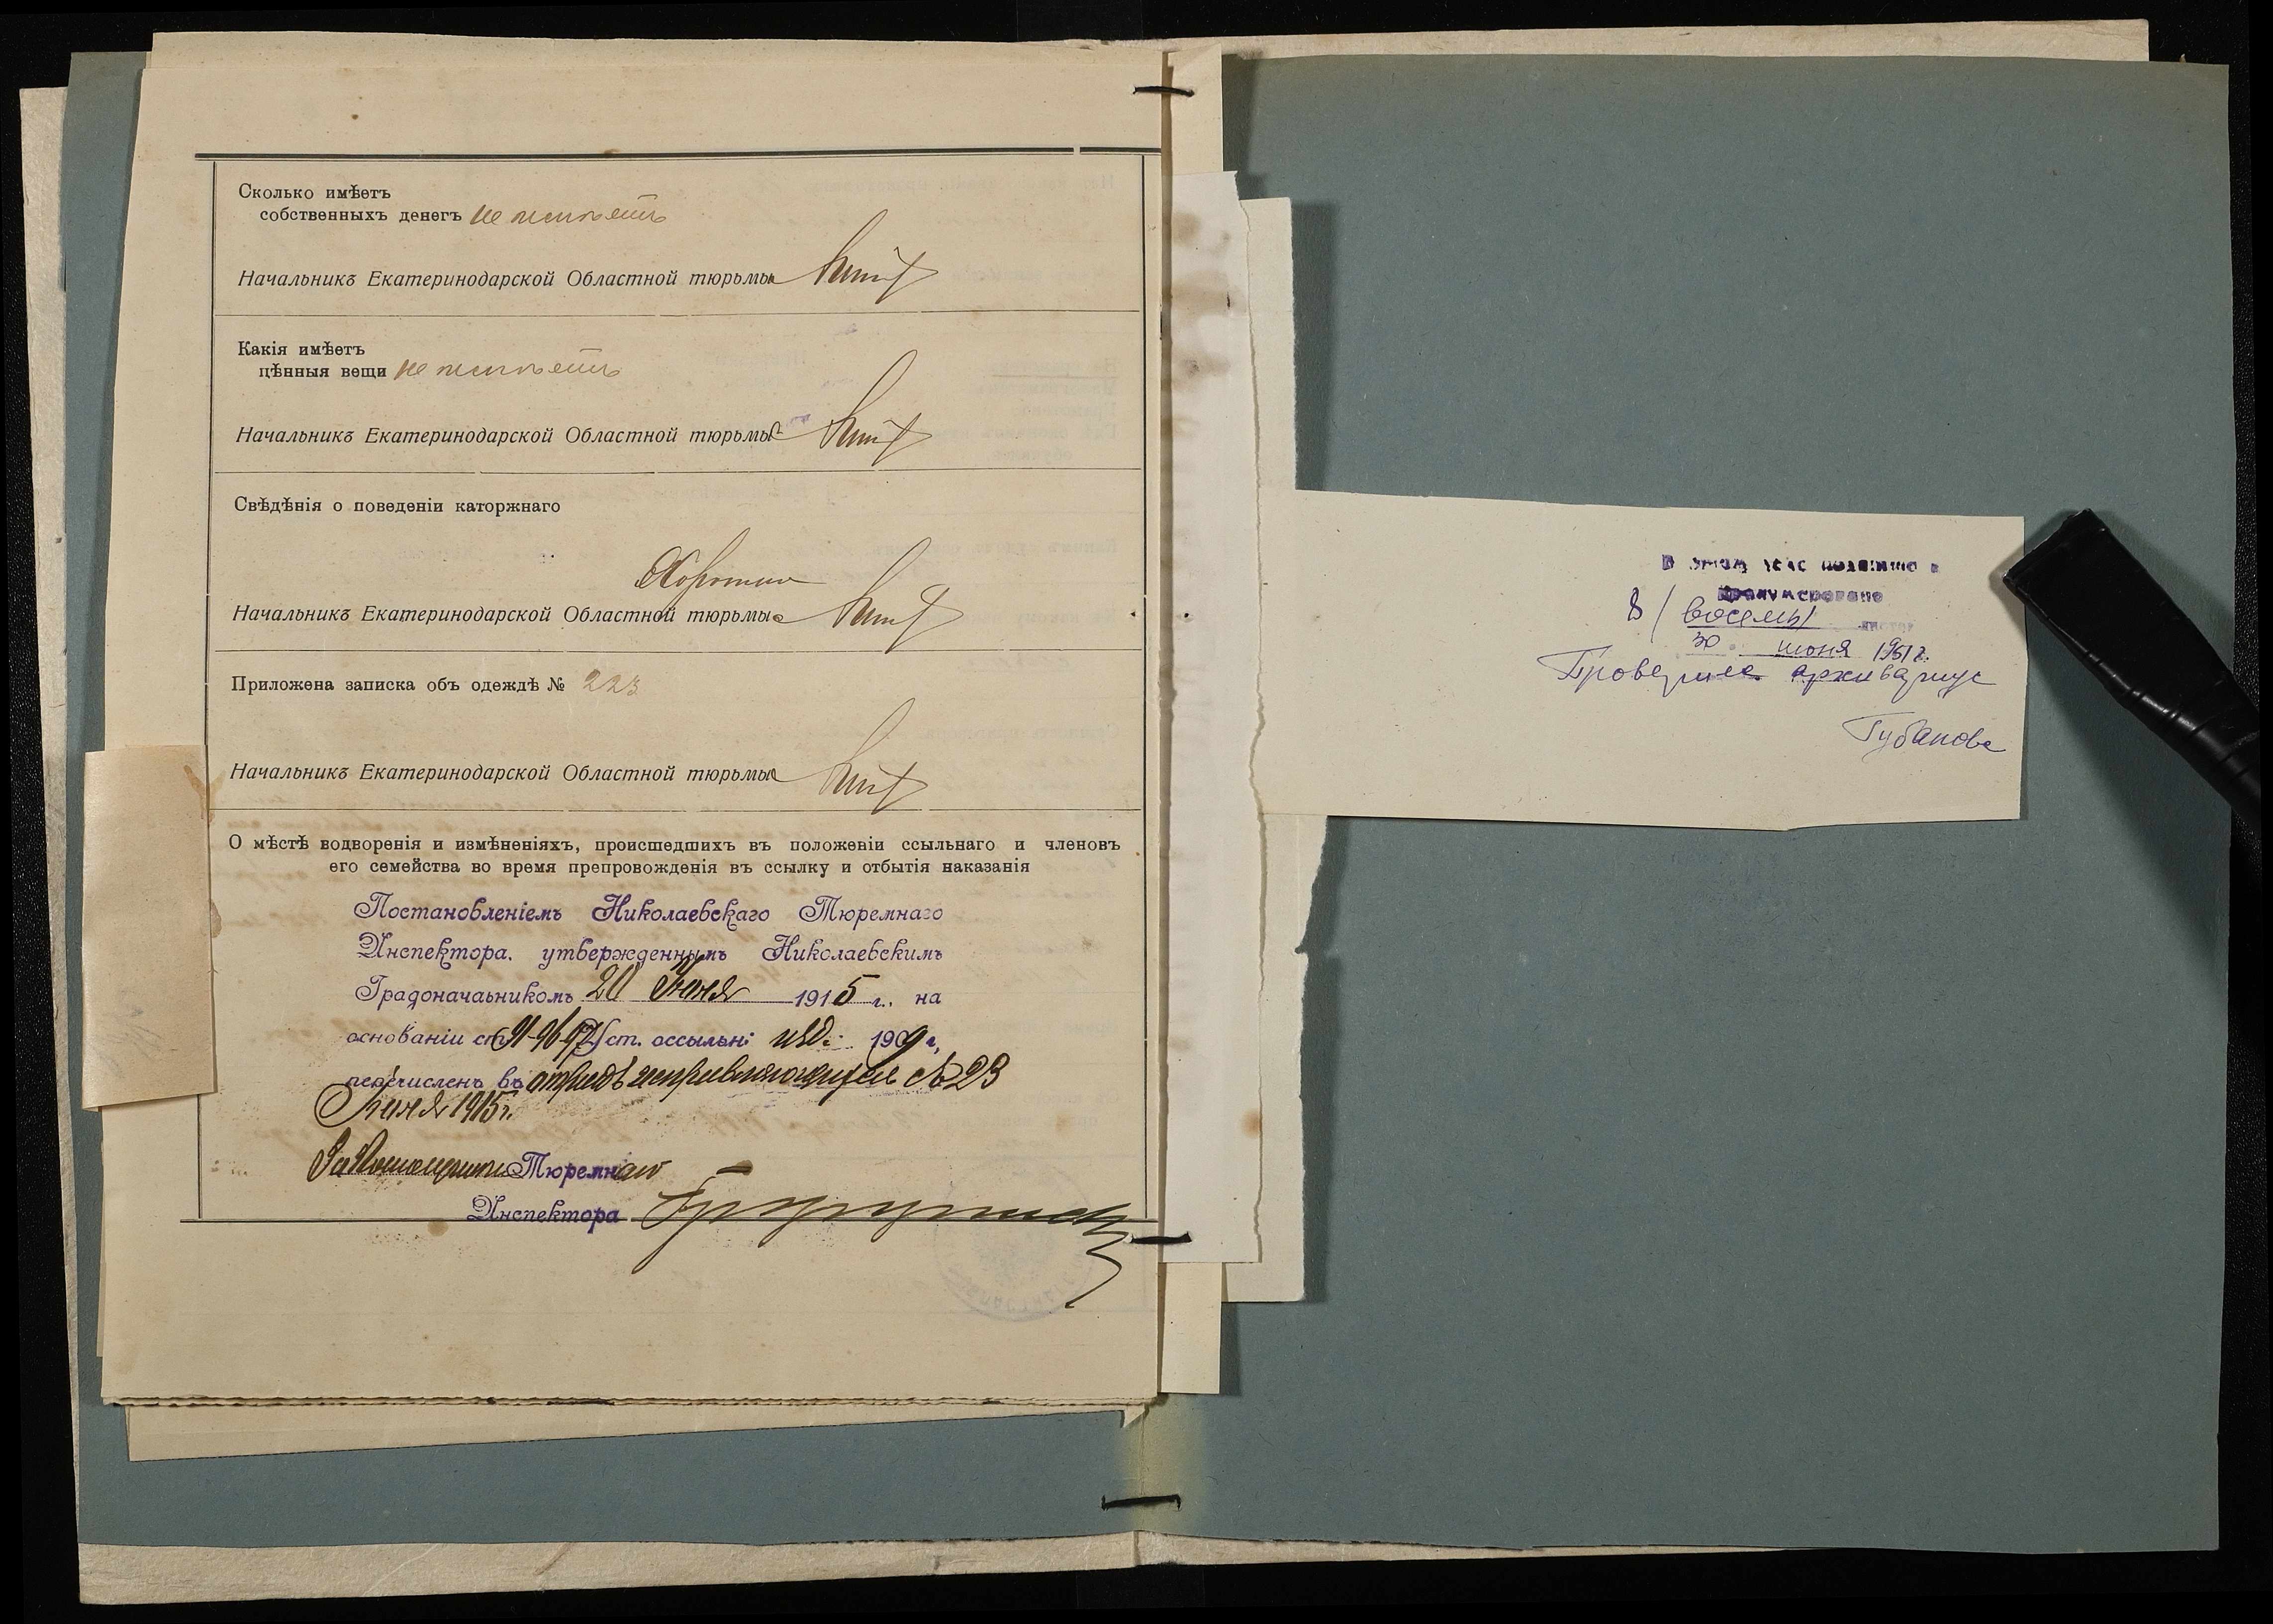 Сколько имѣетъ
собственныхъ денегъ не имѣетъ
Начальникъ Екатеринодарской Областной тюрьмы
Какія имѣетъ
цѣнныя вещи не имѣетъ
Начальникъ Екатеринодарской Областной тюрьмы
Свѣдѣнія о поведеніи каторжнаго
Хорошаго
Начальникъ Екатеринодарской Областной тюрьмы
Приложена записка объ одеждѣ № 223
Начальникъ Екатеринодарской Областной тюрьмы
О мѣстѣ водворенія и измѣненіяхъ, происшедшихъ въ положеніи ссыльнаго и членовъ
его семейства во время препровожденія въ ссылку и отбытія наказанія
Постановленіемъ Николаевскаго Тюремнаго
Инспектора, утвержденнымъ Николаевскимъ
Градоначаьникомъ 20 Іюня 1915 г., на
основаніи ст. 91-96-97 Уст. оссыльн: изд: 1909 г.,
перечисленъ въ отрядъ исправляющихся с 23
Іюня 1915 г.
За Помощника Тюремнаго
Инспектора
В этом деле подшито и
пронумеровано
8/ восемь листов
30 июня 1951 г.
Проверила архивариус
Губанова